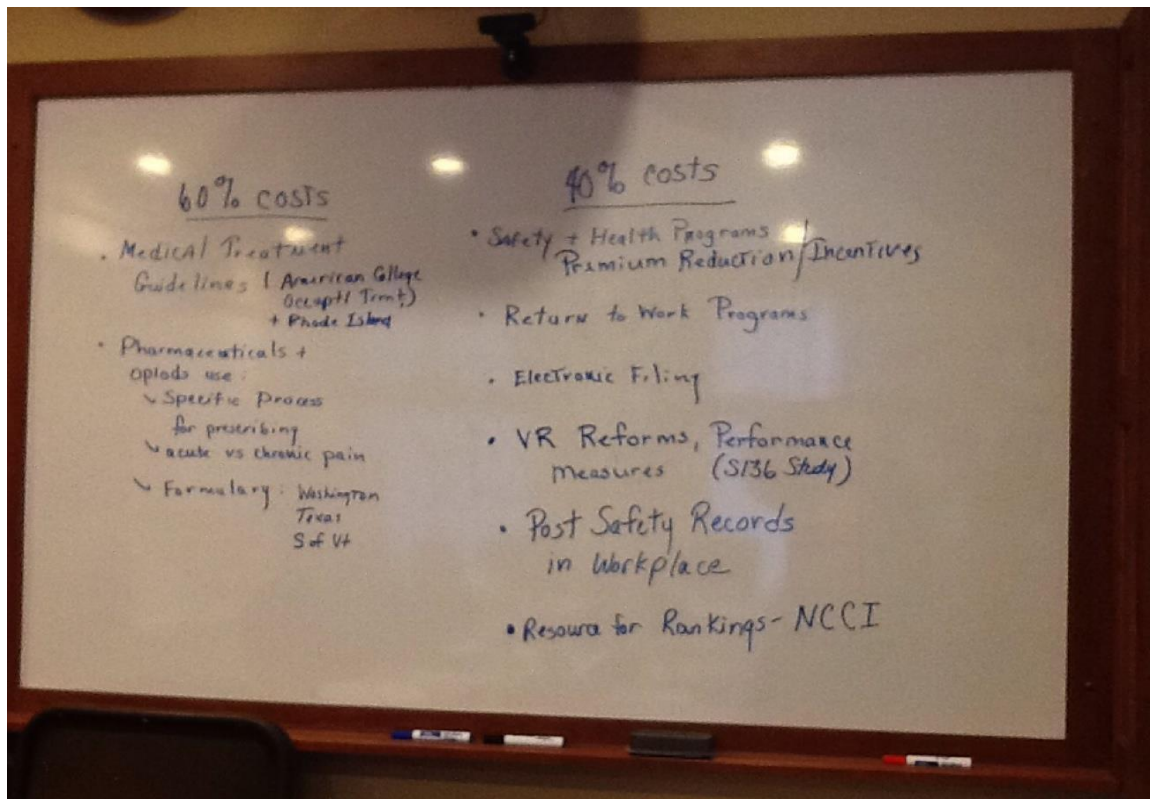 60% costs
• Medical Treatment
Guidelines ( American College
Occupt'l Trmt.)
+ Rhode Island
• Pharmaceuticals +
opiods use:
↘ Specific Process
for prescribing
↘ acute vs chronic pain
↘ Formulary: Washington
Texas
S of Vt
40% costs
• Safety + Health Programs
Premium Reduction/Incentives
• Return to Work Programs
• Electronic Filing
• VR Reforms, Performance
measures (S136 Study)
• Post Safety Records
in Workplace
• Resource for Rankings - NCCI